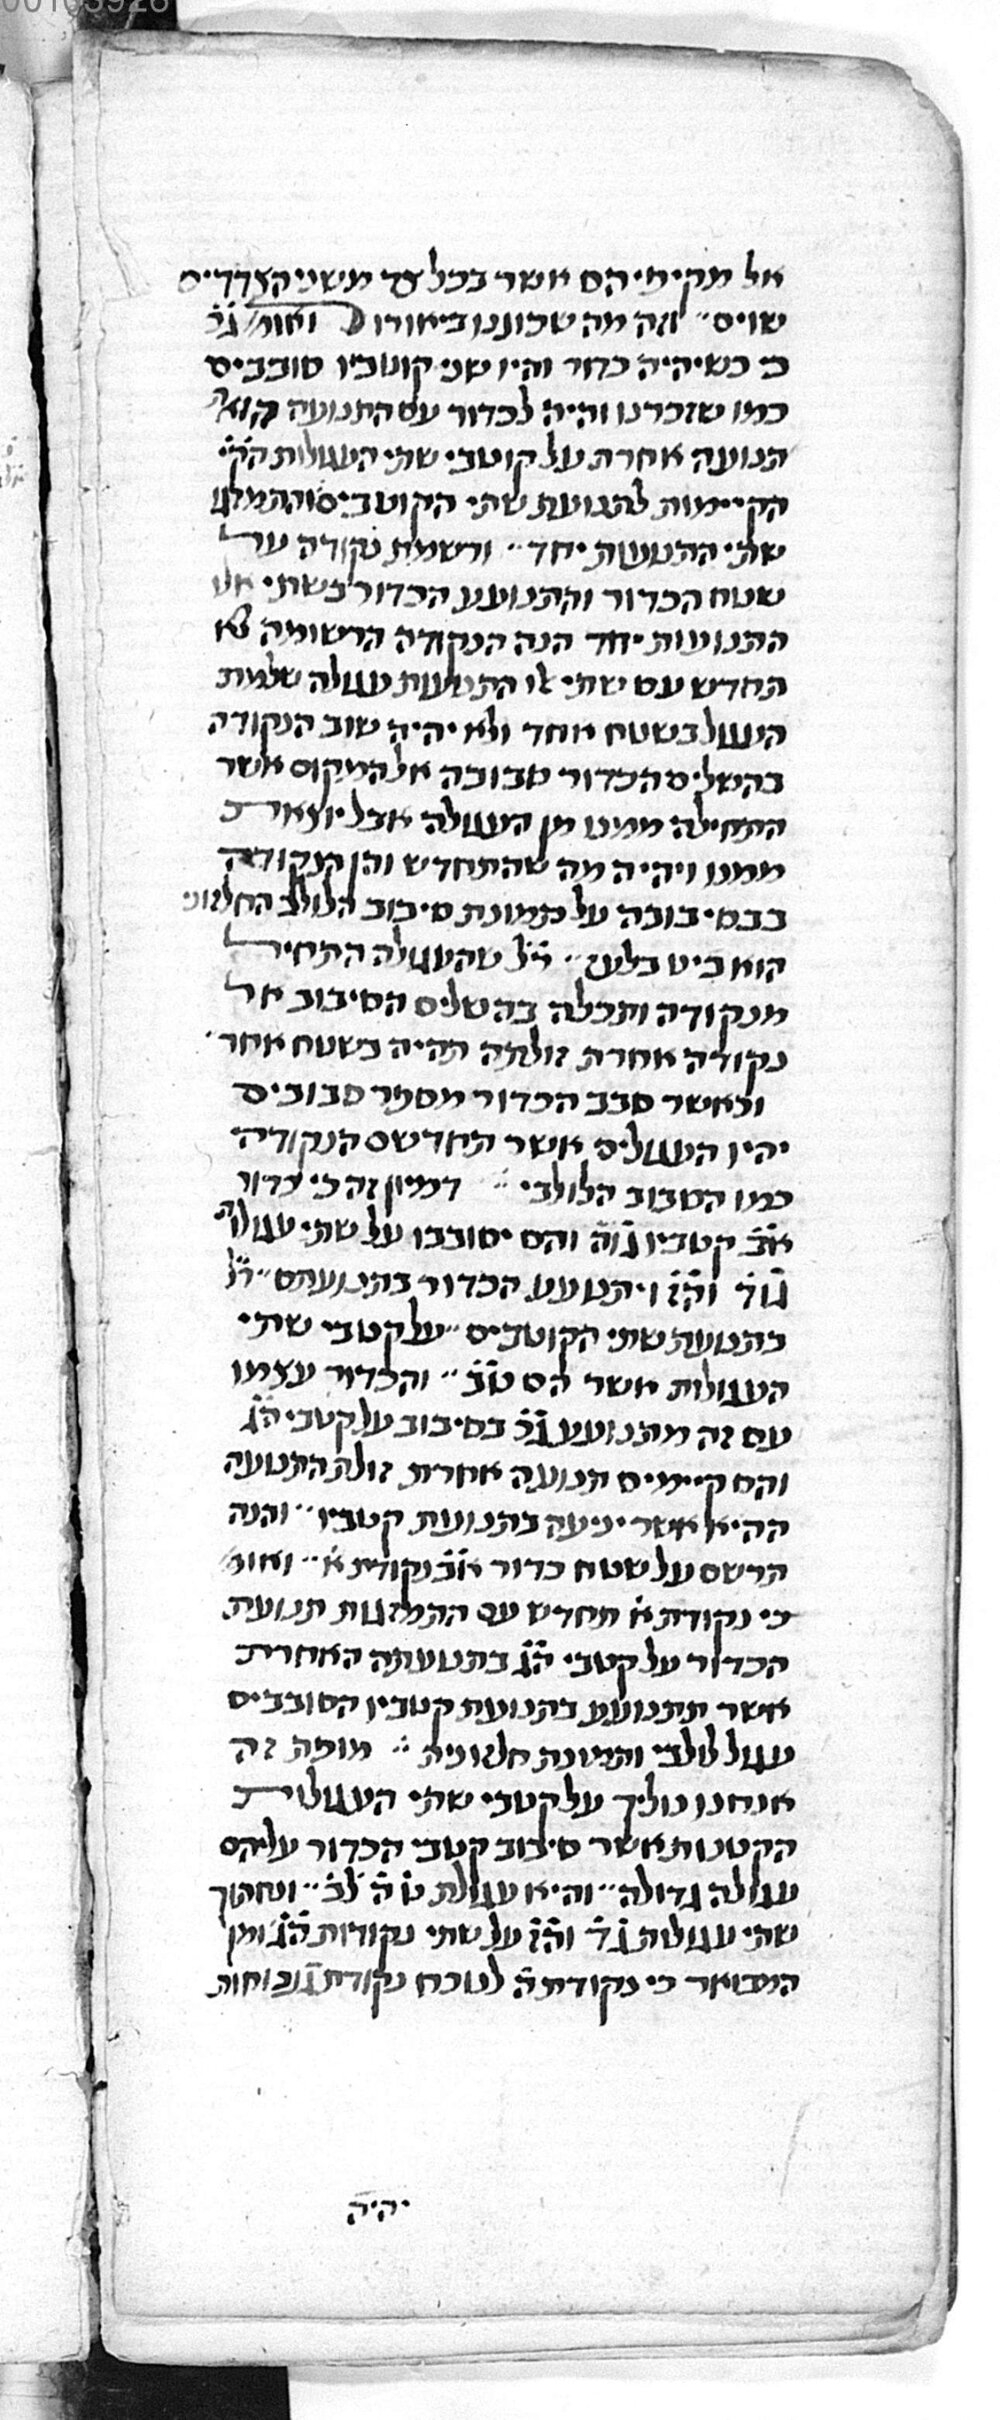 אל מקיפיהם אשר בכל צד משני הצדדים
שוים״ וזה מה שכווננו ביאורו ואומ׳ ג״כ
כי כשיהיה כדור והיו שני קוטביו סובבים
כמו שזכרנו והיה לכדור עם התנועה
תנועה אחרת על קוטבי שתי העגולות
הקיימות לתנועת שתי הקוטבים והתמזגו
שתי התנועות יחד״ ורשמת נקודה על
שטח הכדור והתנועע הכדור בשתי אלו
התנועות יחד הנה הנקודה הרשומה לא
תחדש עם שתי אלו התנועות עגולה שלמת
העגול בשטח אחד ולא יהיה שוב הנקודה
בהשלים הכדור סבובה אל המקום אשר
התחילה ממנו מן העגולה אבל יוצאת
ממנו ויהיה מה שהתחדש והן הנקודה
בבסיבובה על תמונת סיבוב הלולב החלזוני
הוא ביט בלעז״ ר״ל שהעגולה התחיל
מנקודה ותכלה בהשלים הסיבוב אל
נקודה אחרת זולתה תהיה בשטח אחר״
וכאשר סבב הכדור מספר סבובים
יהיו העגולים אשר תחדשם הנקודה
כמו הסבוב הלולבי״ דמיון זה כי כדור
א״ב קטביו ג״וה והם יסובבו על שתי עגולו׳
ג״ד וה״ז ויתנועע הכדור בתנועתם״ ר״ל
בתנועת שתי הקוטבים״ על קטבי שתי
העגולות אשר הם ט״ב״ והכדור עצמו
עם זה מתנועע ג״כ בסיבוב על קטבי ה״ג
והם קיימים תנועה אחרת זולת התנועה
ההיא אשר יניעה בתנועת קטביו״ והנה
תרשם על שטח כדור א״ב נקודת א״ ואומ׳
כי נקודת א תחדש עם התמזגות תנועת
הכדור על קטבי ה״ג בתנועתה האחרת
אשר תתנועע בתנועת קטביו הסובבים
עגול לולבי ותמונת חלזונית״ מופת זה
אנחנו נוליך על קטבי שתי העגולות
הקטנות אשר סיבוב קטבי הכדור עליהם
עגולה גדולה״ והיא עגולת ט ה ל״ב״ ותחתך
שתי עגולות ג״ד וה״ז על שתי נקודות ה״ג ומן
המבואר כי נקודת ה לנוכח נקודת ג נוכחות
יהיה